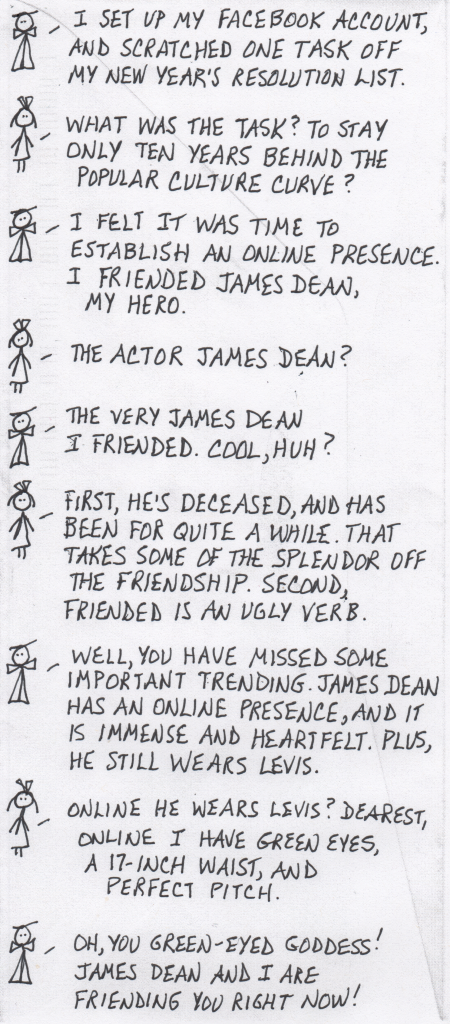 I SET UP MY FACEBOOK ACCOUNT,
AND SCRATCHED ONE TASK OFF
MY NEW YEAR'S RESOLUTION LIST.
WHAT WAS THE TASK? TO STAY
ONLY TEN YEARS BEHIND THE
POPULAR CULTURE CURVE?
I FELT IT WAS TIME TO
ESTABLISH AN ONLINE PRESENCE.
I FRIENDED JAMES DEAN,
MY HERO.
THE ACTOR JAMES DEAN?
THE VERY JAMES DEAN
I FRIENDED. COOL, HUH?
FIRST, HE'S DECEASED, AND HAS
BEEN FOR QUITE A WHILE. THAT
TAKES SOME OF THE SPLENDOR OFF
THE FRIENDSHIP. SECOND,
FRIENDED IS AN UGLY VERB.
WELL, YOU HAVE MISSED SOME
IMPORTANT TRENDING. JAMES DEAN
HAS AN ONLINE PRESENCE, AND IT
IS IMMENSE AND HEARTFELT. PLUS,
HE STILL WEARS LEVIS.
ONLINE HE WEARS LEVIS? DEAREST,
ONLINE I HAVE GREEN EYES,
A 17-INCH WAIST, AND
PERFECT PITCH.
OH, YOU GREEN-EYED GODDESS!
JAMES DEAN AND I ARE
FRIENDING YOU RIGHT NOW!